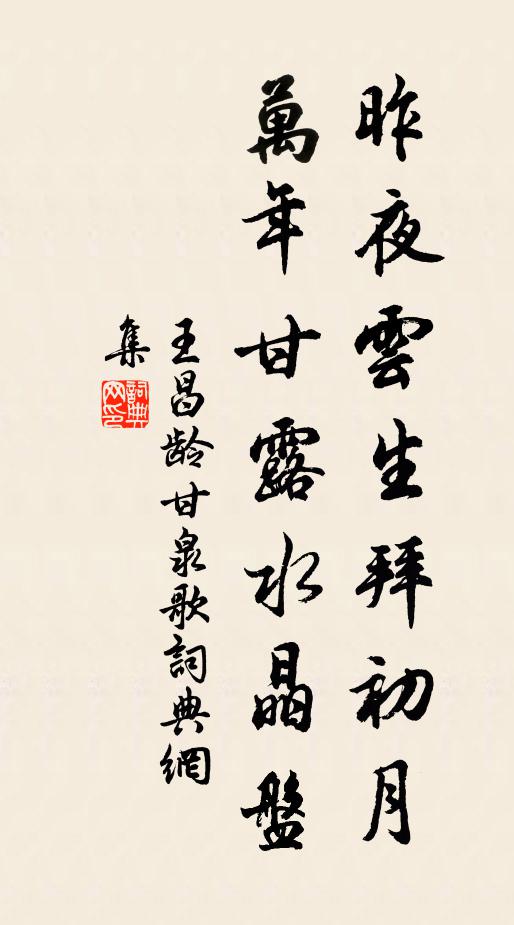 昨夜雲生拜初月
萬年甘露水晶盤
王昌齡甘泉歌詞典網
集
詞典网印